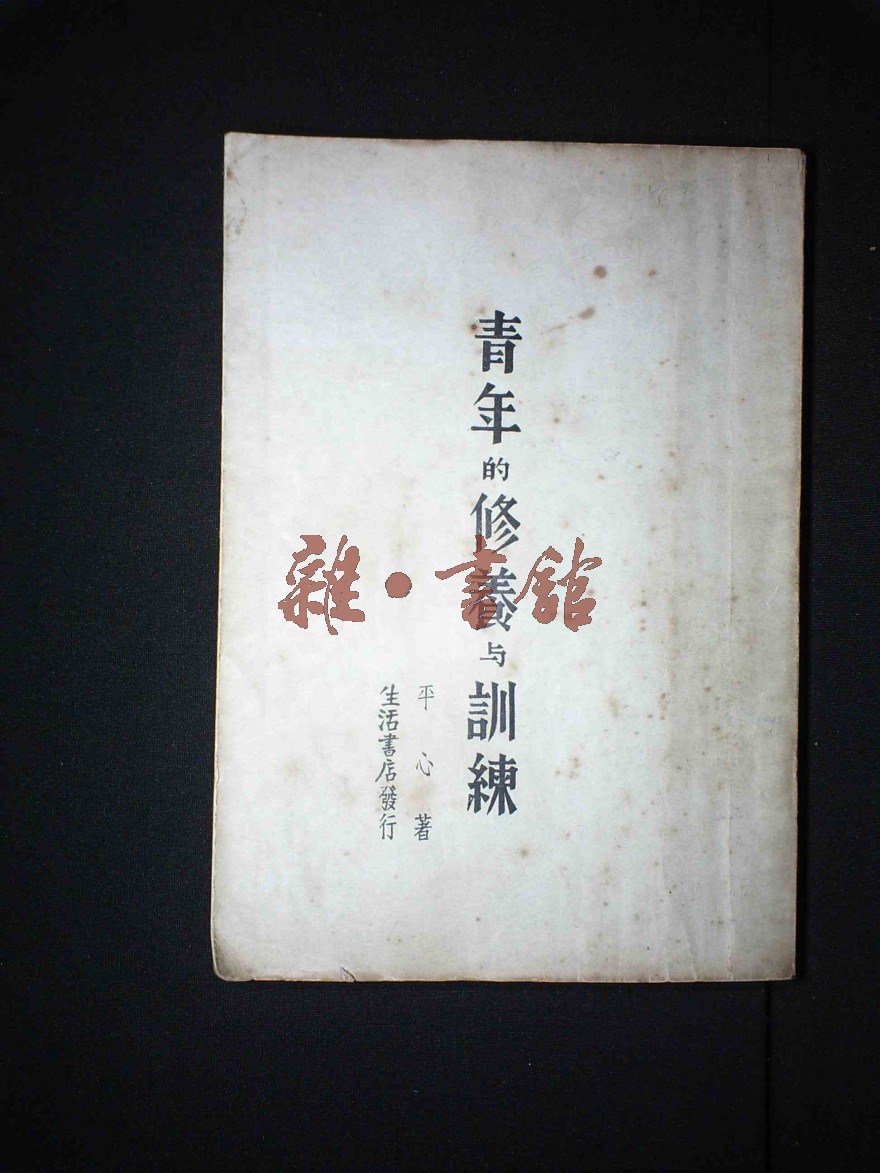 青年的修養与訓練
平心著
生活書店發行
雜·書館